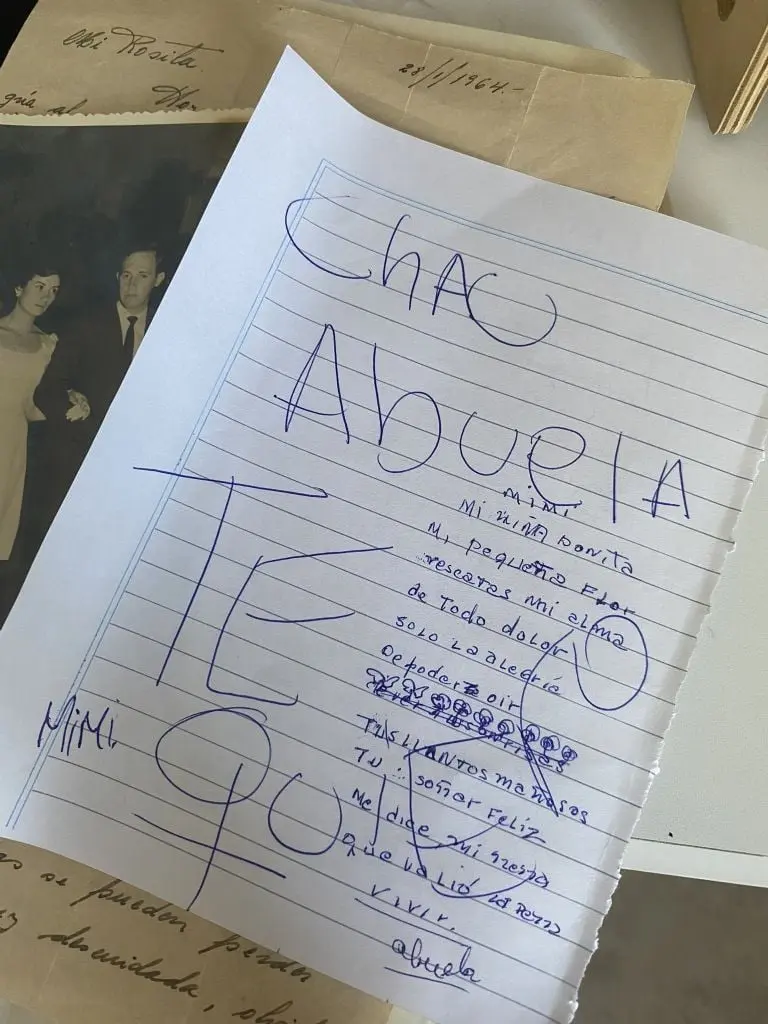 Mi Rosita.
28/1/1964.-
ChAO
AbuelA
TE
QUIERO
MiMi
MiMi
Mi NIÑA BONITA
Mi pequeña FLOR
rescatas mi alma
de Todo dolor
solo La alegría
De poder oir
TUS LLANTOS mañosos
TU soñar FELIZ
Me dice mi
que valió La Pena
VIVIR.
abuela
se pueden perder
descuidada,